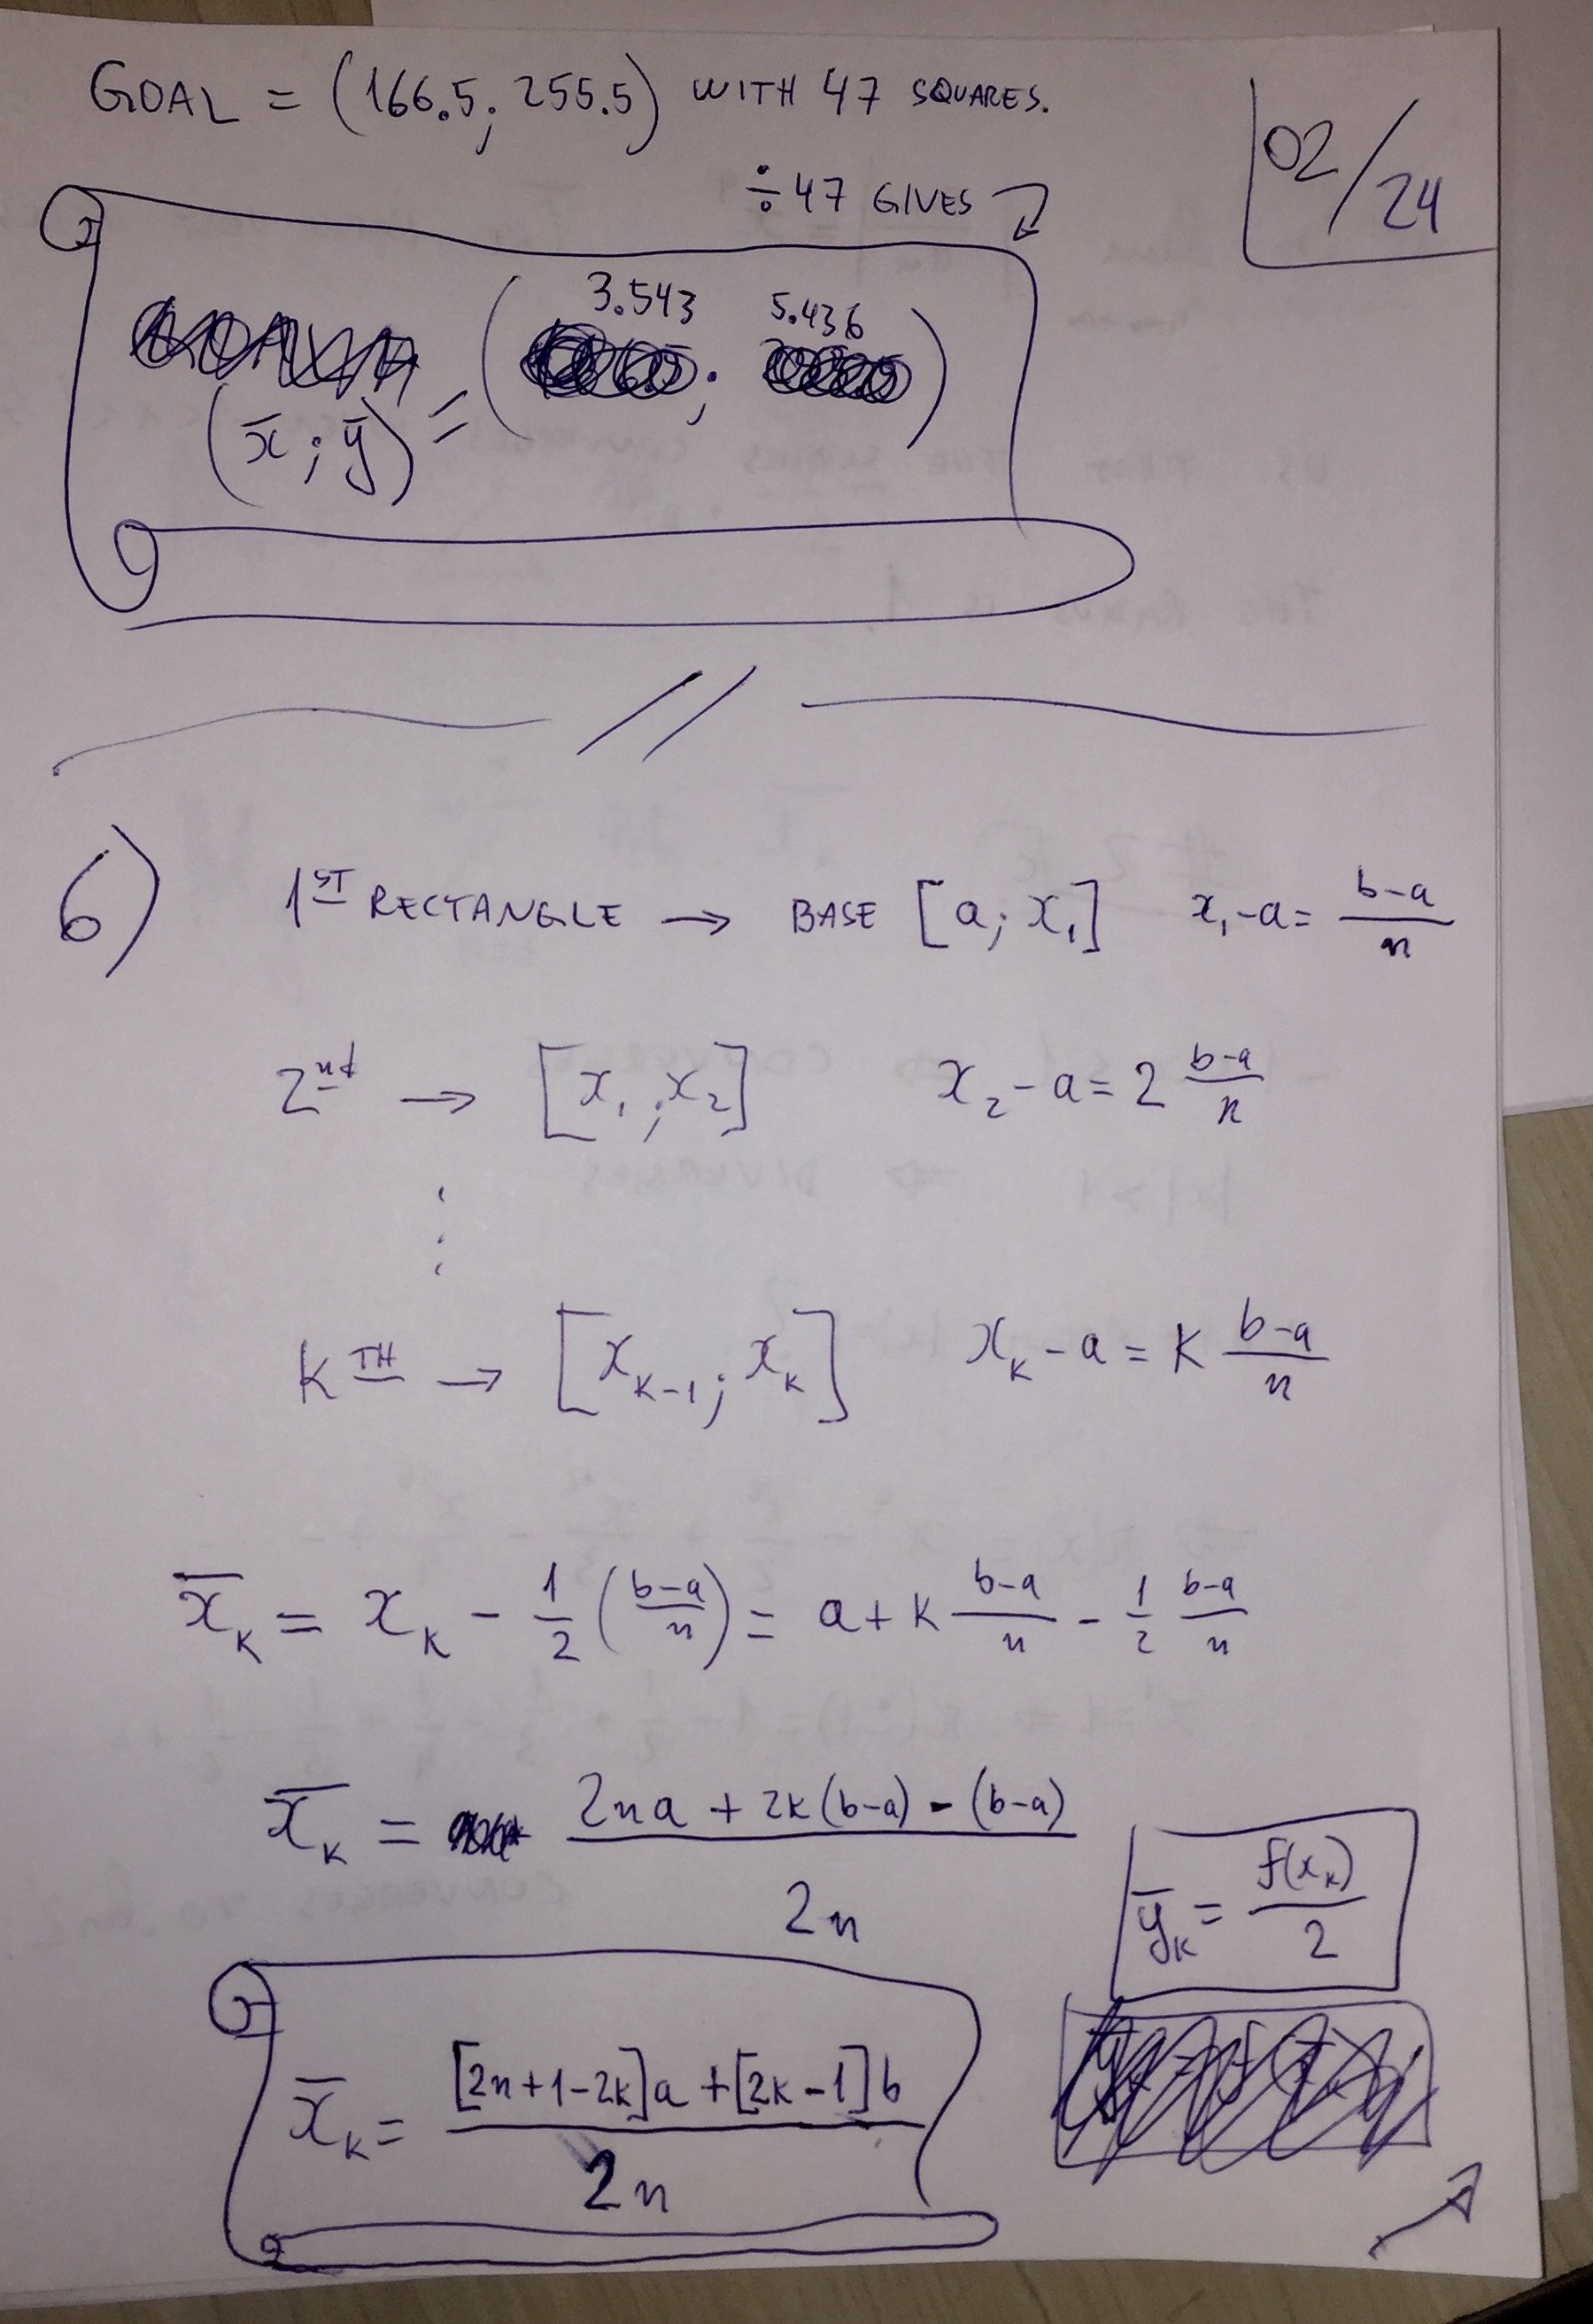 GOAL = (166.5; 255.5) WITH 47 SQUARES.
02/24
÷47 GIVES
3.543 5.436
(x̄; ȳ) = ( ; )
6) 1ST RECTANGLE → BASE [a; x₁] x₁-a = (b-a)/n
2nd → [x₁; x₂] x₂-a = 2 (b-a)/n
⋮
KTH → [x_{K-1}; x_K] x_K-a = K (b-a)/n
x̄_K = x_K - 1/2 ((b-a)/n) = a + K (b-a)/n - 1/2 (b-a)/n
x̄_K = (2na + 2K(b-a) - (b-a))/2n
ȳ_K = f(x_K)/2
x̄_K = ([2n+1-2K]a + [2K-1]b)/2n